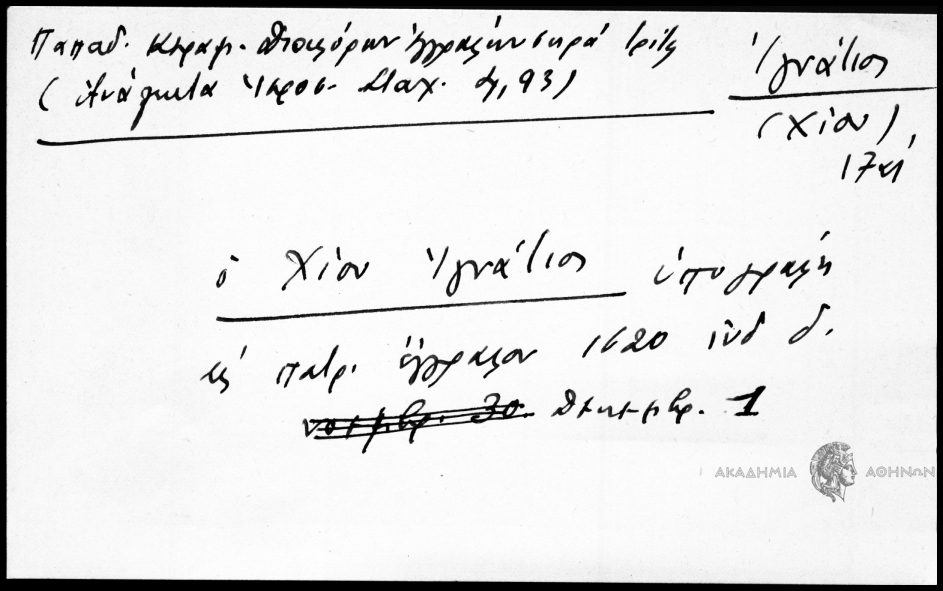 Παπαδ. Κεραμ. Διαφόρων ἐγγράφων σειρά τρίτη
(Ἀνάλεκτα Ἱεροσ. Σταχ. 4, 93)
Ἰγνάτιος
(Χίου),
17 αἰ
ὁ Χίου Ἰγνάτιος ὑπογραφή
εἰς πατρ. ἔγγραφον 1620 ἰνδ δ.
νοεμβρ. 30 Δεκεμβρ. 1
ΑΚΑΔΗΜΙΑ ΑΘΗΝΩΝ